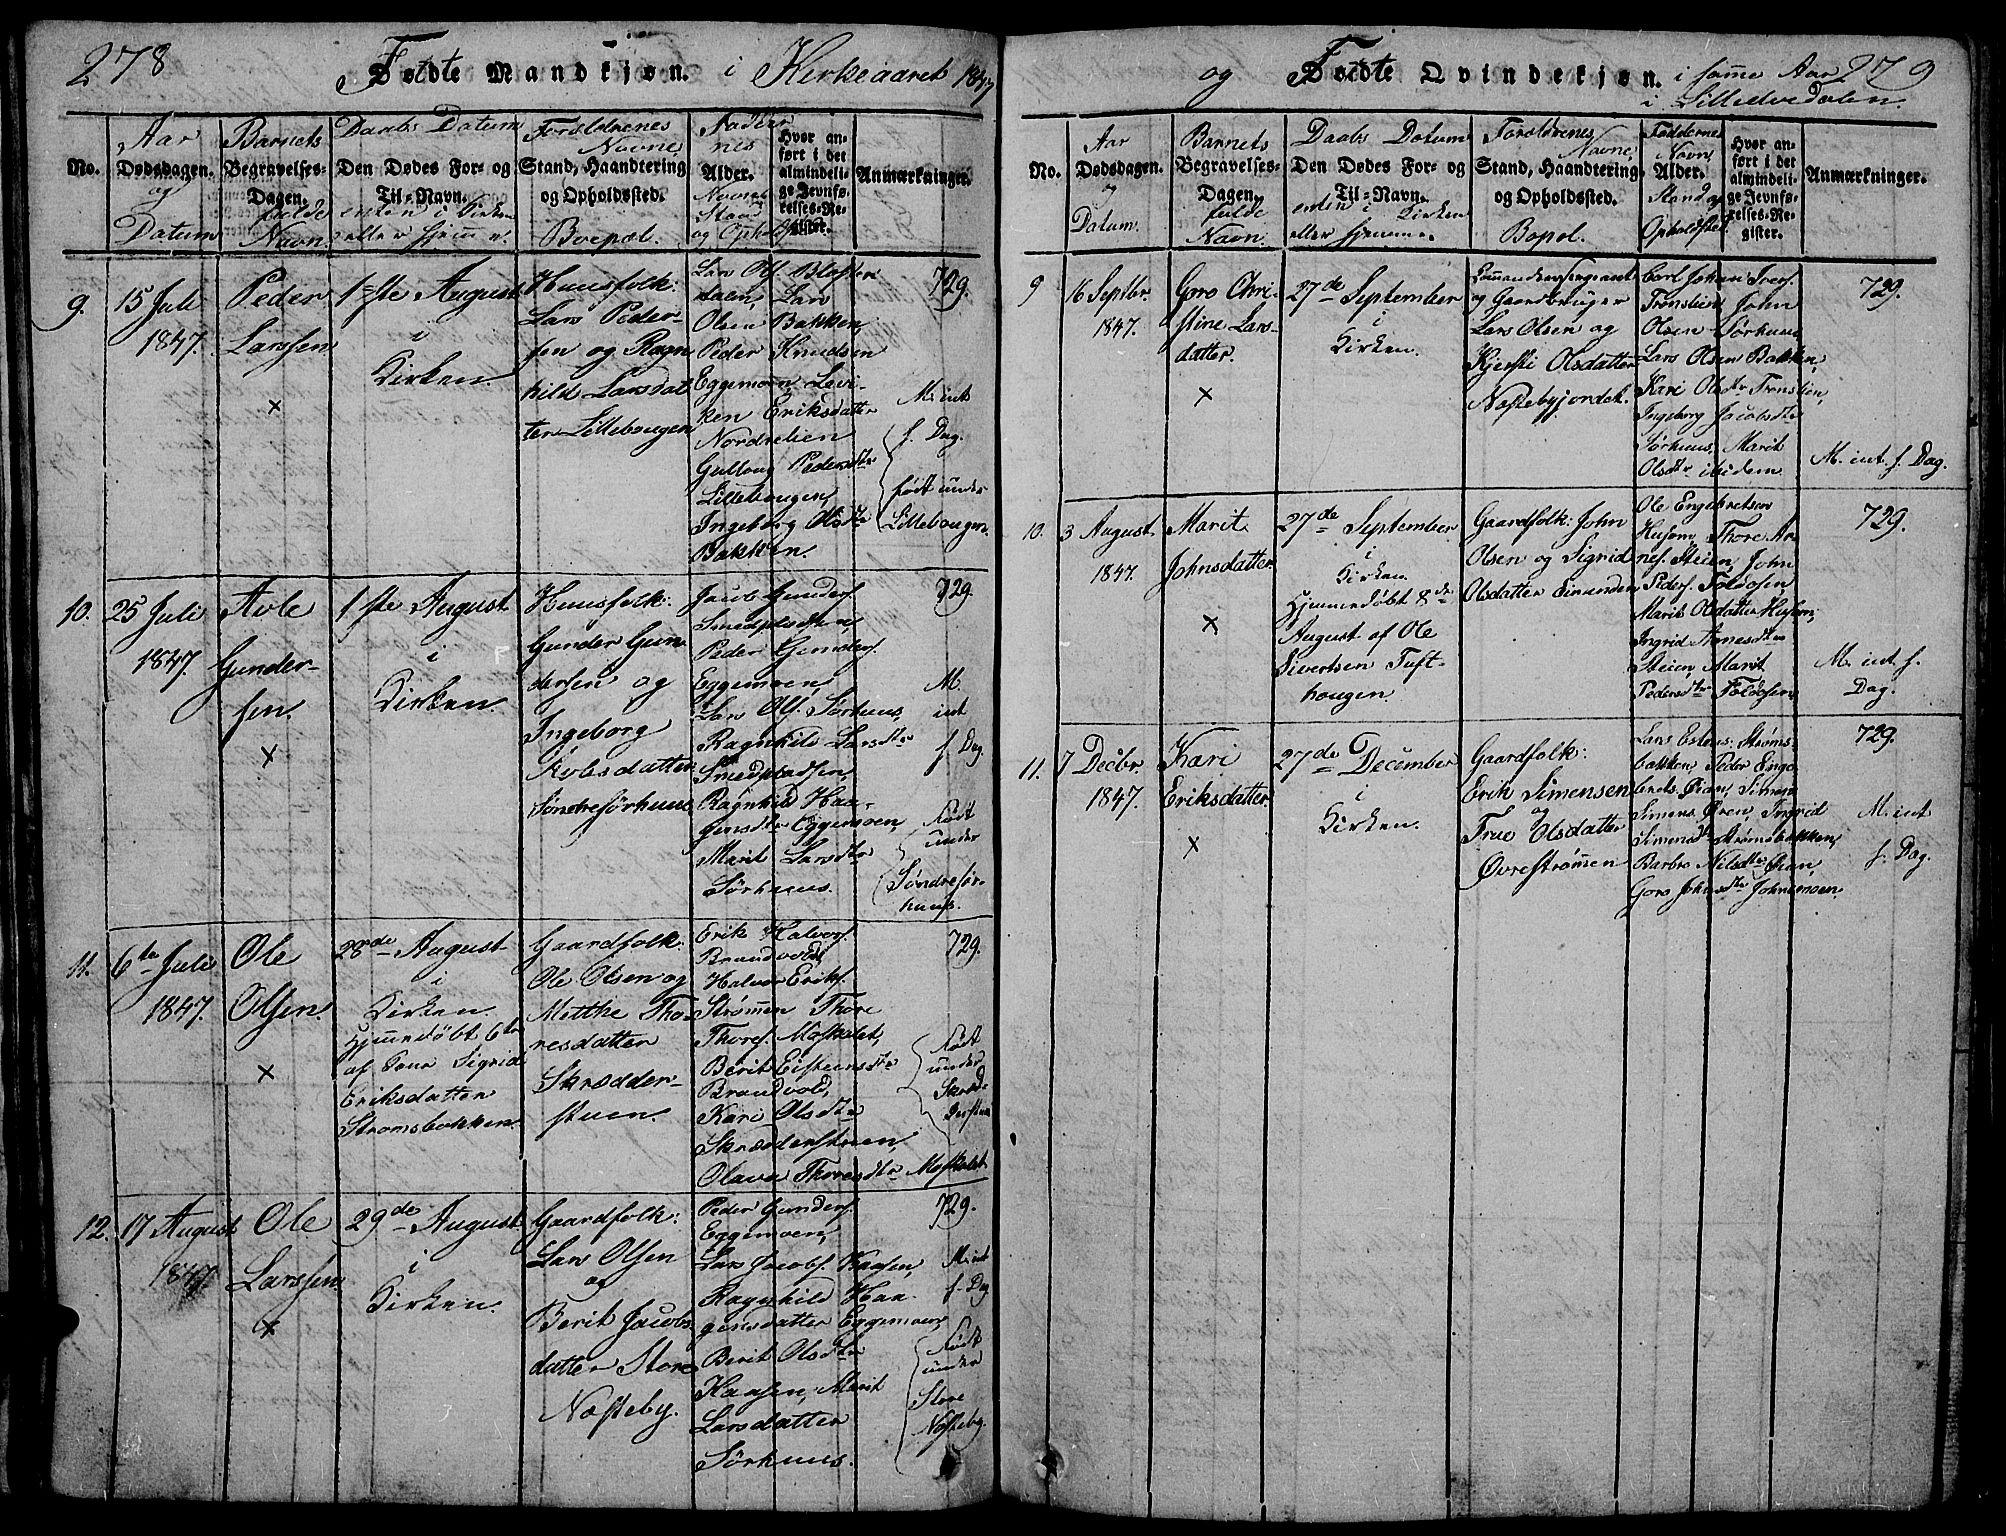 278
Fødte Mandkjøn. i Kirkeaaret 1847
No.
Aar
Dødsdagen.
og
Datum
Barnets
Begravelses-
Dagen.
fulde
Navn.
Daabs Datum
Den Dødes For- og
Til-Navn.
enten i Kirken
eller hjemme.
Forældrenes
Navne
Stand, Haandtering
og Opholdssted.
Boepæl.
Faddernes
Alder.
Navne
Stand
og Ophold
Hvor an-
ført i det
almindeli-
ge Jevnfø-
relses-Re-
gister.
Anmærkninger.
9.
15 Juli
1847.
Peder
Larssen
×
1ste August
i
Kirken
Huusfolk:
Lars Peder-
sen og Ragn-
hild Larsdat-
ter Lillebougen
Lars Ols.
Lars
Olsen Bakken,
Peder Knudsen
Eggemoen, Levi-
ken Eriksdatter
Nordrelien
Gullaug Pedersdtr
Lillebougen,
Ingeborg Olsdtr
Bakken.
729.
M. int
f. Dag.
født under
Lillebougen.
10.
25 Juli
1847.
Avle
Gunder-
sen.
×
1ste August
i
Kirken.
Huusfolk:
Gunder Gun-
dersen og
Ingeborg
Søndre Sørhuus
Jacob Gunders.
Smedpladsen,
Peder Gunders.
Eggemoen,
Lars Ols. Sørhuus,
Ragnhild Larsdtr
Smedpladsen,
Ragnhild Haa-
gensdtr Eggemoen,
Marit Larsdtr
Sørhuus.
729.
M.
int
f. Dag.
Født
under
Søndre Sør-
huus.
11.
6te Juli
1847.
Ole
Olsen.
×
28de August
i
Kirken.
Hjemmedøbt 6te
af Kona Sigrid
Eriksdatter
Strømsbakken.
Gaardfolk:
Ole Olsen og
Metthe Tho-
resdatter
Skrædder-
stuen.
Erik Halvors.
Brandvold,
Halvor Eriks.
Strømmen Thore
Thores. Moskalet,
Berit Eistensdtr
Brandvold,
Kari Olsdtr
Skrædderstuen,
Olava Thoresdtr Moskalet
729.
Født
under
Skræd-
derstuen
12.
17 August
1847.
Ole
Larssen.
×
29de August
i
Kirken.
Gaardfolk:
Lars Olsen
og
Berit Jacobs-
datter Store
Næsteby.
Peder Gunders.
Eggemoen,
Lars Jacobs. Haasen,
Ragnhild Haa-
gensdatter Eggemoen,
Berit Olsdtr
Haasen, Marit
Larsdatter
Sørhuus.
729.
M. int
f. Dag
Født
under
Store
Næsteby.
og Fødte Qvindekjøn. i samme Aar 279
i Lilleelvedalen.
No.
Aar
Dødsdagen.
og
Datum.
Barnets
Begravelses-
Dagen.
fulde
Navn.
Daabs Datum
Den Dødes For- og
Til-Navn.
enten i Kirken
eller hjemme.
Forældrenes
Navne,
Stand, Haandtering
og Opholdssted.
Bopæl.
Faddernes
Navn,
Alder.
Stand og
Opholdsted.
Hvor an-
ført i det
almindeli-
ge Jevnfø-
relses-Re-
gister.
Anmærkninger.
9
16 Septbr.
1847.
Goro Chri-
stine Lars-
datter.
×
27de September
i
Kirken.
Commandeersergeant
og Gaardbruger
Lars Olsen og
Kjersti Olsdatter
Næstebyjordet.
Carl Johan Ivers.
Trønslien John
Olsen Sørhuus
Lars Olsen Bakken,
Kari Olsdtr Trønslien,
Ingeborg Jacobsdtr
Sørhuus, Marit
Olsdtr ibidem.
729.
M. int. f. Dag.
10.
3 August
1847.
Marit
Johnsdatter
×
27de September
i
Kirken.
Hjemmedøbt 8de
August af Ole
Sivertsen Tuft-
hougen.
Gaardfolk: John
Olsen og Sigrid
Olsdatter Einunden
Ole Engebretsen
Husom, Thore Ar-
nes. Steien, John
Peders. Foldosen,
Marit Olsdatter Husom,
Ingrid Arnesdtr
Steien, Marit
Pedersdtr Foldosen.
729.
M. int. f.
Dag.
11.
7 Decbr.
1847.
Kari
Eriksdatter
×
27de December
i
Kirken.
Gaardfolk:
Erik Simensen
og
True Olsdatter
Øvre Strømmen
Lars Estens. Strøms-
bakken, Peder Enge-
brets. Øian, Simen
Simens. Øren, Ingrid
Simensdtr Strømsbakken,
Barbro Nilsdtr Øian,
Goro Johnsdtr Johnsmoen.
729.
M. int
f. Dag.